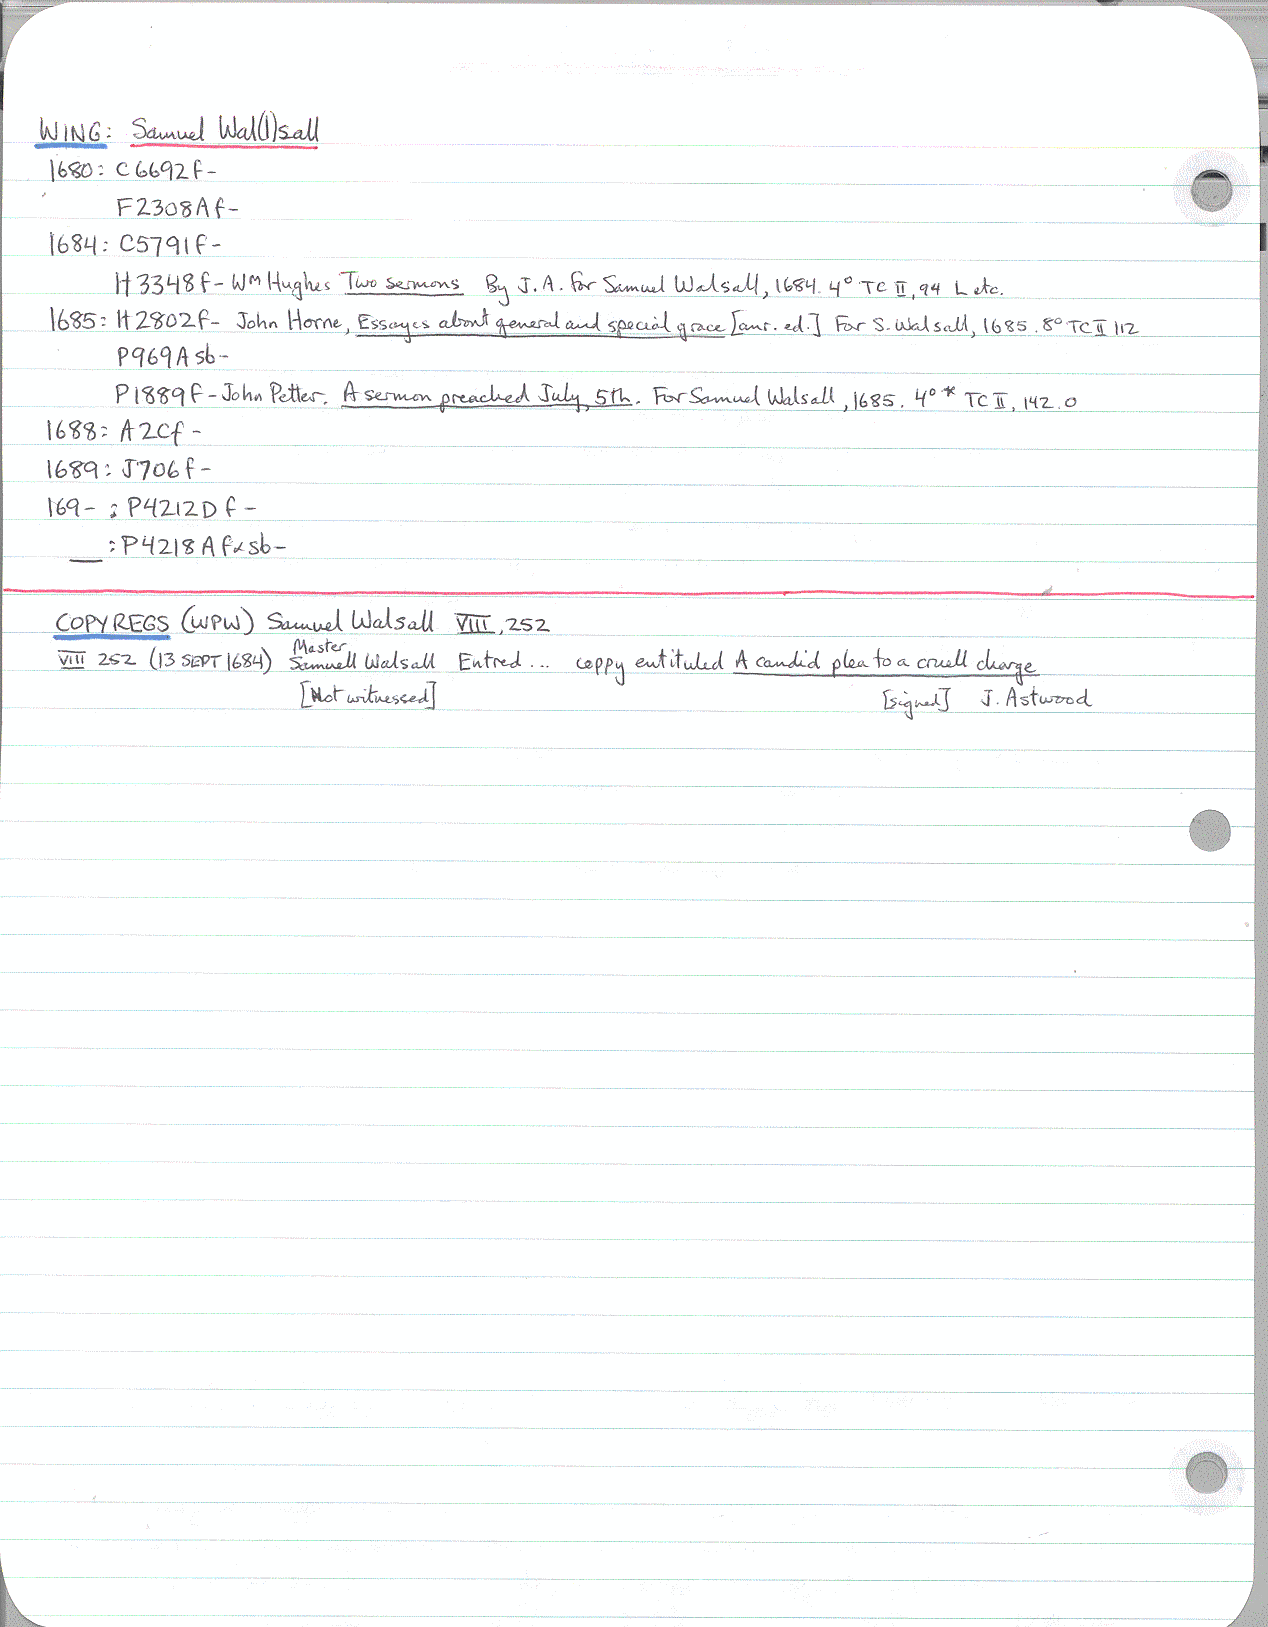 WING: Samuel Wal(l)sall
1680: C6692f-
F2308Af-
1684: C5791f-
H3348f- Wm Hughes Two sermons By J.A. for Samuel Walsall, 1684. 4° TC II, 94 L etc.
1685: H2802f- John Horne, Essayes about general and special grace [anr. ed.] For S. Walsall, 1685. 8° TC II 112
P969A sb-
P1889f- John Petter. A sermon preached July, 5th. For Samuel Walsall, 1685. 4°* TC II, 142. O
1688: A2Cf -
1689: J706f-
169- : P4212D f-
__ : P4218A f & sb-
COPY REGS (WPW) Samuel Walsall VIII, 252
VIII 252 (13 SEPT 1684) Master Samuell Walsall Entred... coppy entituled A candid plea to a cruell charge
[Not witnessed] [signed] J. Astwood